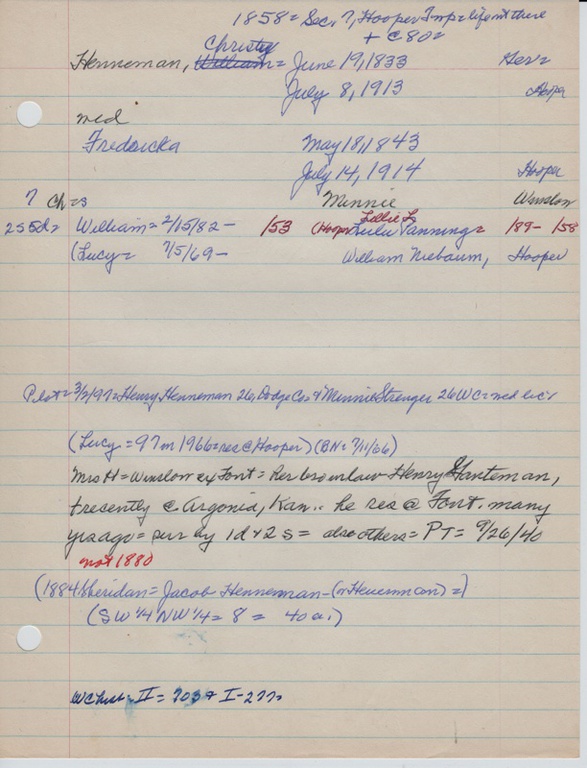 1858= Sec. 7, Hooper Imp= life int there
+ C 80=
Christy
Henneman, William= June 19, 1833 Ger=
July 8, 1913 Hooper
med
Fredericka May 18, 1843
July 14, 1914 Hooper
7 Ch=s Minnie Winslow
Lillie L.
2 S 5d= William= 2/15/82- /53 (Hooper Lulu Panning= /89- /58
(Lucy= 7/5/69- William Niebaum, Hooper
Pilot= 3/2/97= Henry Henneman 26, Dodge Co. & Minnie Strenger 26 WC= med lic'r
(Lucy = 97 in 1966= res @ Hooper) (BH= 7/11/66)
Mrs H= Winslow ex Font= her bro in law Henry Hanteman,
+ recently @ Argonia, Kan.. he res @ Font. many
yrs ago= sur by 1 d + 2 s= also others= PT= 9/26/40
not 1880
(1884 Sheridan= Jacob Henneman-(or Heuenman)=)
(SW 1/4 NW 1/4= 8 = 40 a.)
WC hist- II= 703 + I-277=